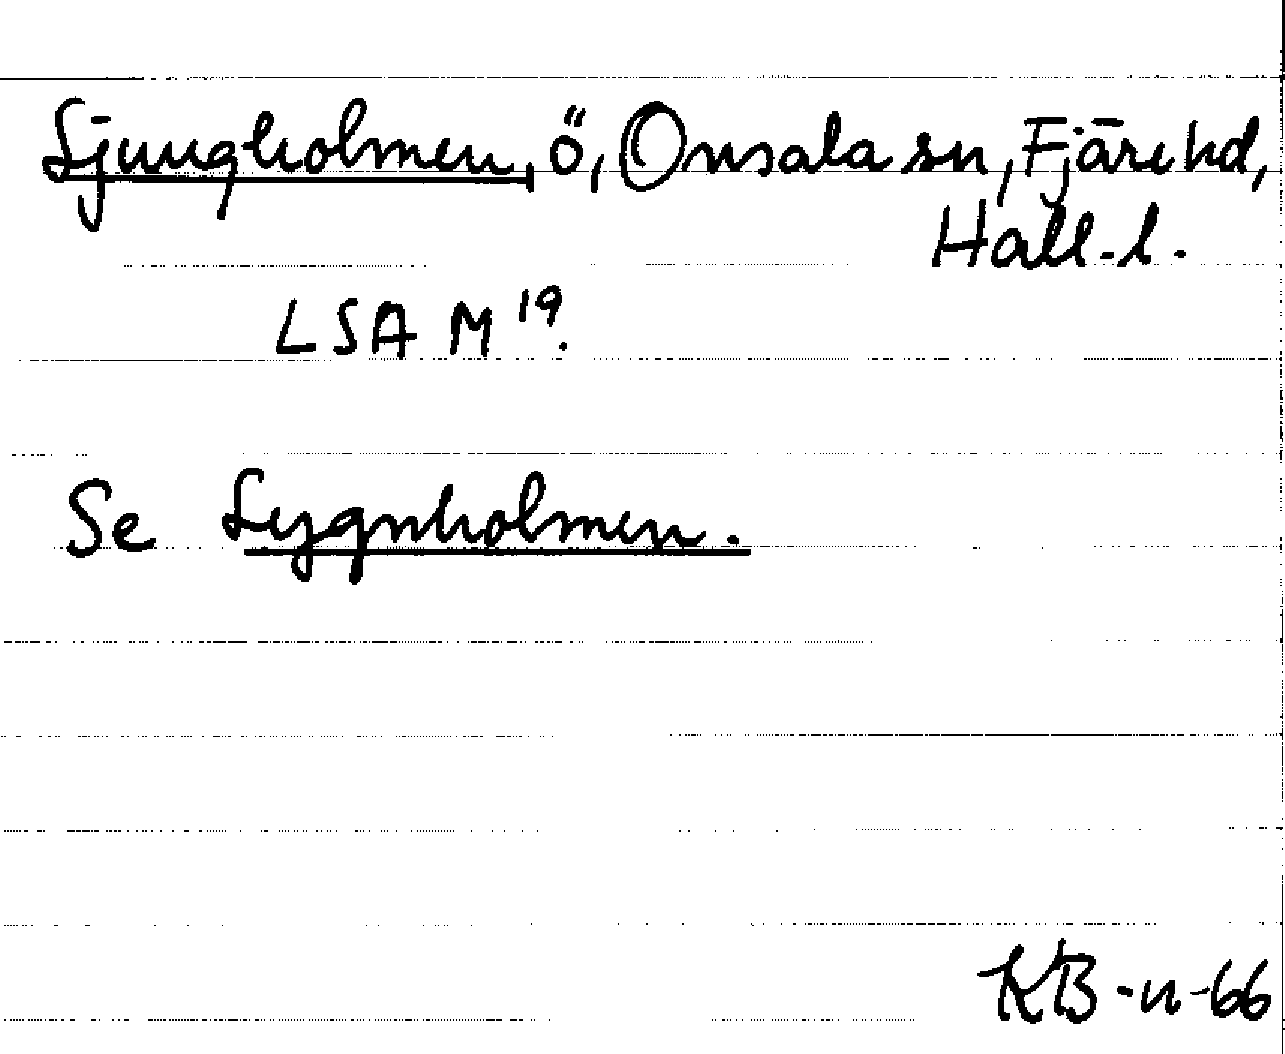 Ljungholmen, ö, Onsala sn, Fjäre hd,
Hall. l.
LSA M 19.
Se Lygnholmen.
KB-n-66